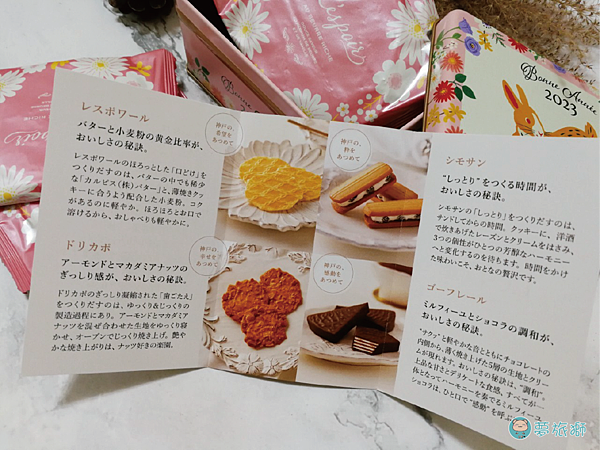 L'espoir
Bonne Année
2023
レスポワール
バターと小麦粉の黄金比率が、
おいしさの秘訣。
レスポワールのほろっとした「口どけ」を
つくりだすのは、バターの中でも稀少
な「カルピス(株)バター」と、薄焼きクッ
キーに合うよう配合した小麦粉。コク
があるのに軽やか。ほろほろとお口で
溶けるから、おしゃべりも軽やかに。
神戸の、
希望を
あつめて
ドリカポ
アーモンドとマカダミアナッツの
ぎっしり感が、おいしさの秘訣。
ドリカポのぎっしり凝縮された「歯ごたえ」
をつくりだすのは、ゆっくり&じっくりの
製造過程にあり。アーモンドとマカダミア
ナッツを混ぜ合わせた生地をゆっくり寝
かせ、オーブンでじっくり焼き上げ。艶や
かな焼き上がりは、ナッツ好きの楽園。
神戸の、
幸せを
あつめて
神戸の、
粋を
あつめて
シモサン
“しっとり”をつくる時間が、
おいしさの秘訣。
シモサンの「しっとり」をつくりだすのは、
サンドしてからの時間。クッキーに、洋酒
で炊きあげたレーズンとクリームをはさみ、
3つの個性がひとつの芳醇なハーモニー
へと変化するのを待ちます。時間をかけ
た味わいこそ、おとなの贅沢です。
神戸の、
感動を
あつめて
ゴーフレール
ミルフィーユとショコラの調和が、
おいしさの秘訣。
“サクッ”と軽やかな音とともにチョコレートの
内側から、薄く焼き上げた5層の生地とクリー
ムが現れます。おいしさの秘訣は、“調和”。
上品な甘さとデリケートな食感、すべてが一
体となってハーモニーを奏でるミルフィーユ
ショコラは、ひと口で“感動”を呼ぶ
夢旅獺